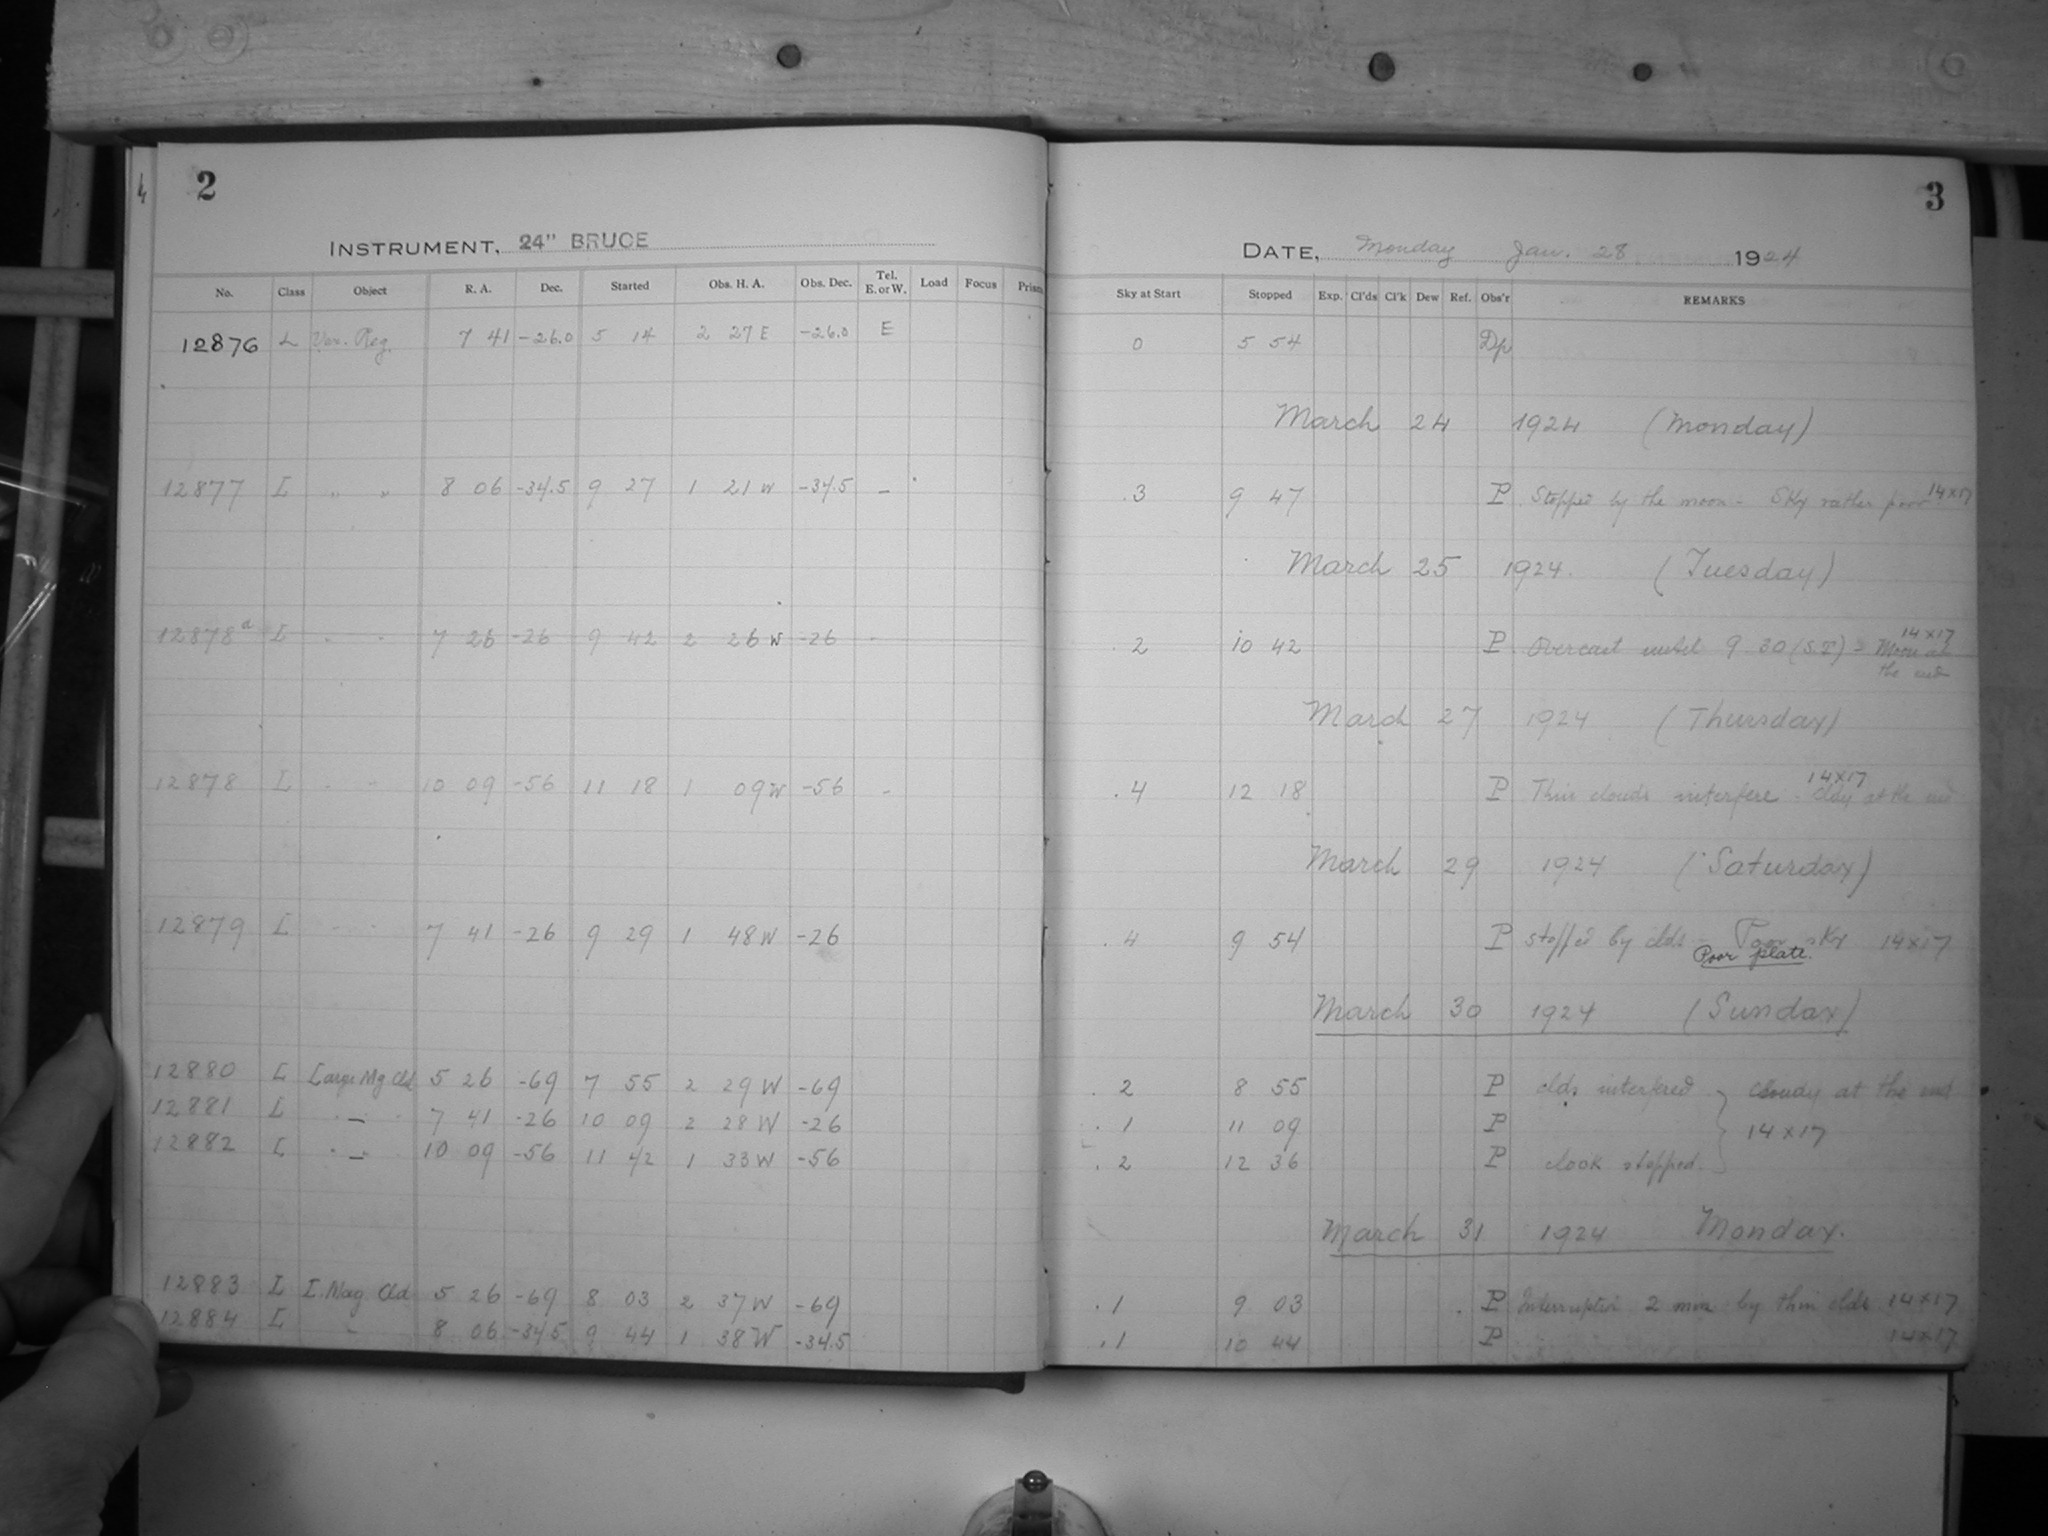 4 2
INSTRUMENT, 24" BRUCE
No. Class Object R. A. Dec. Started Obs. H. A. Obs. Dec. Tel. E. or W. Load Focus Prism
12876 L Var. Reg. 7 41 -26.0 5 14 2 27 E -26.0 E
12877 L " " 8 06 -34.5 9 27 1 21 W -34.5 -
12878a L " " 7 26 -26 9 42 2 26 W -26 -
12878 L " " 10 09 -56 11 18 1 09 W -56 -
12879 L - - 7 41 -26 9 29 1 48 W -26
12880 L Large Mg Cld 5 26 -69 7 55 2 29 W -69
12881 L . - . 7 41 -26 10 09 2 28 W -26
12882 L . - . 10 09 -56 11 42 1 33 W -56
12883 L L. Mag. Cld 5 26 -69 8 03 2 37 W -69
12884 L - 8 06 -34.5 9 44 1 38 W -34.5
3
DATE, Monday Jan. 28 1924
Sky at Start Stopped Exp. Cl'ds Cl'k Dew Ref. Obs'r REMARKS
0 5 54 Dp
March 24 1924 (Monday)
.3 9 47 P Stopped by the moon - Sky rather poor 14x17
March 25 1924. (Tuesday)
.2 10 42 P Overcast until 9 30 (S.T) - Moon at the end 14x17
March 27 1924 (Thursday)
.4 12 18 P Thin clouds interfere. cldy at the end 14x17
March 29 1924 (Saturday)
.4 9 54 P stopped by clds - Poor sky 14x17
Poor plate.
March 30 1924 (Sunday)
.2 8 55 P clds interfered } cloudy at the end
.1 11 09 P 14x17
.2 12 36 P clock stopped.
March 31 1924 Monday.
.1 9 03 P Interruption 2 min by thin clds 14x17
.1 10 44 P 14x17